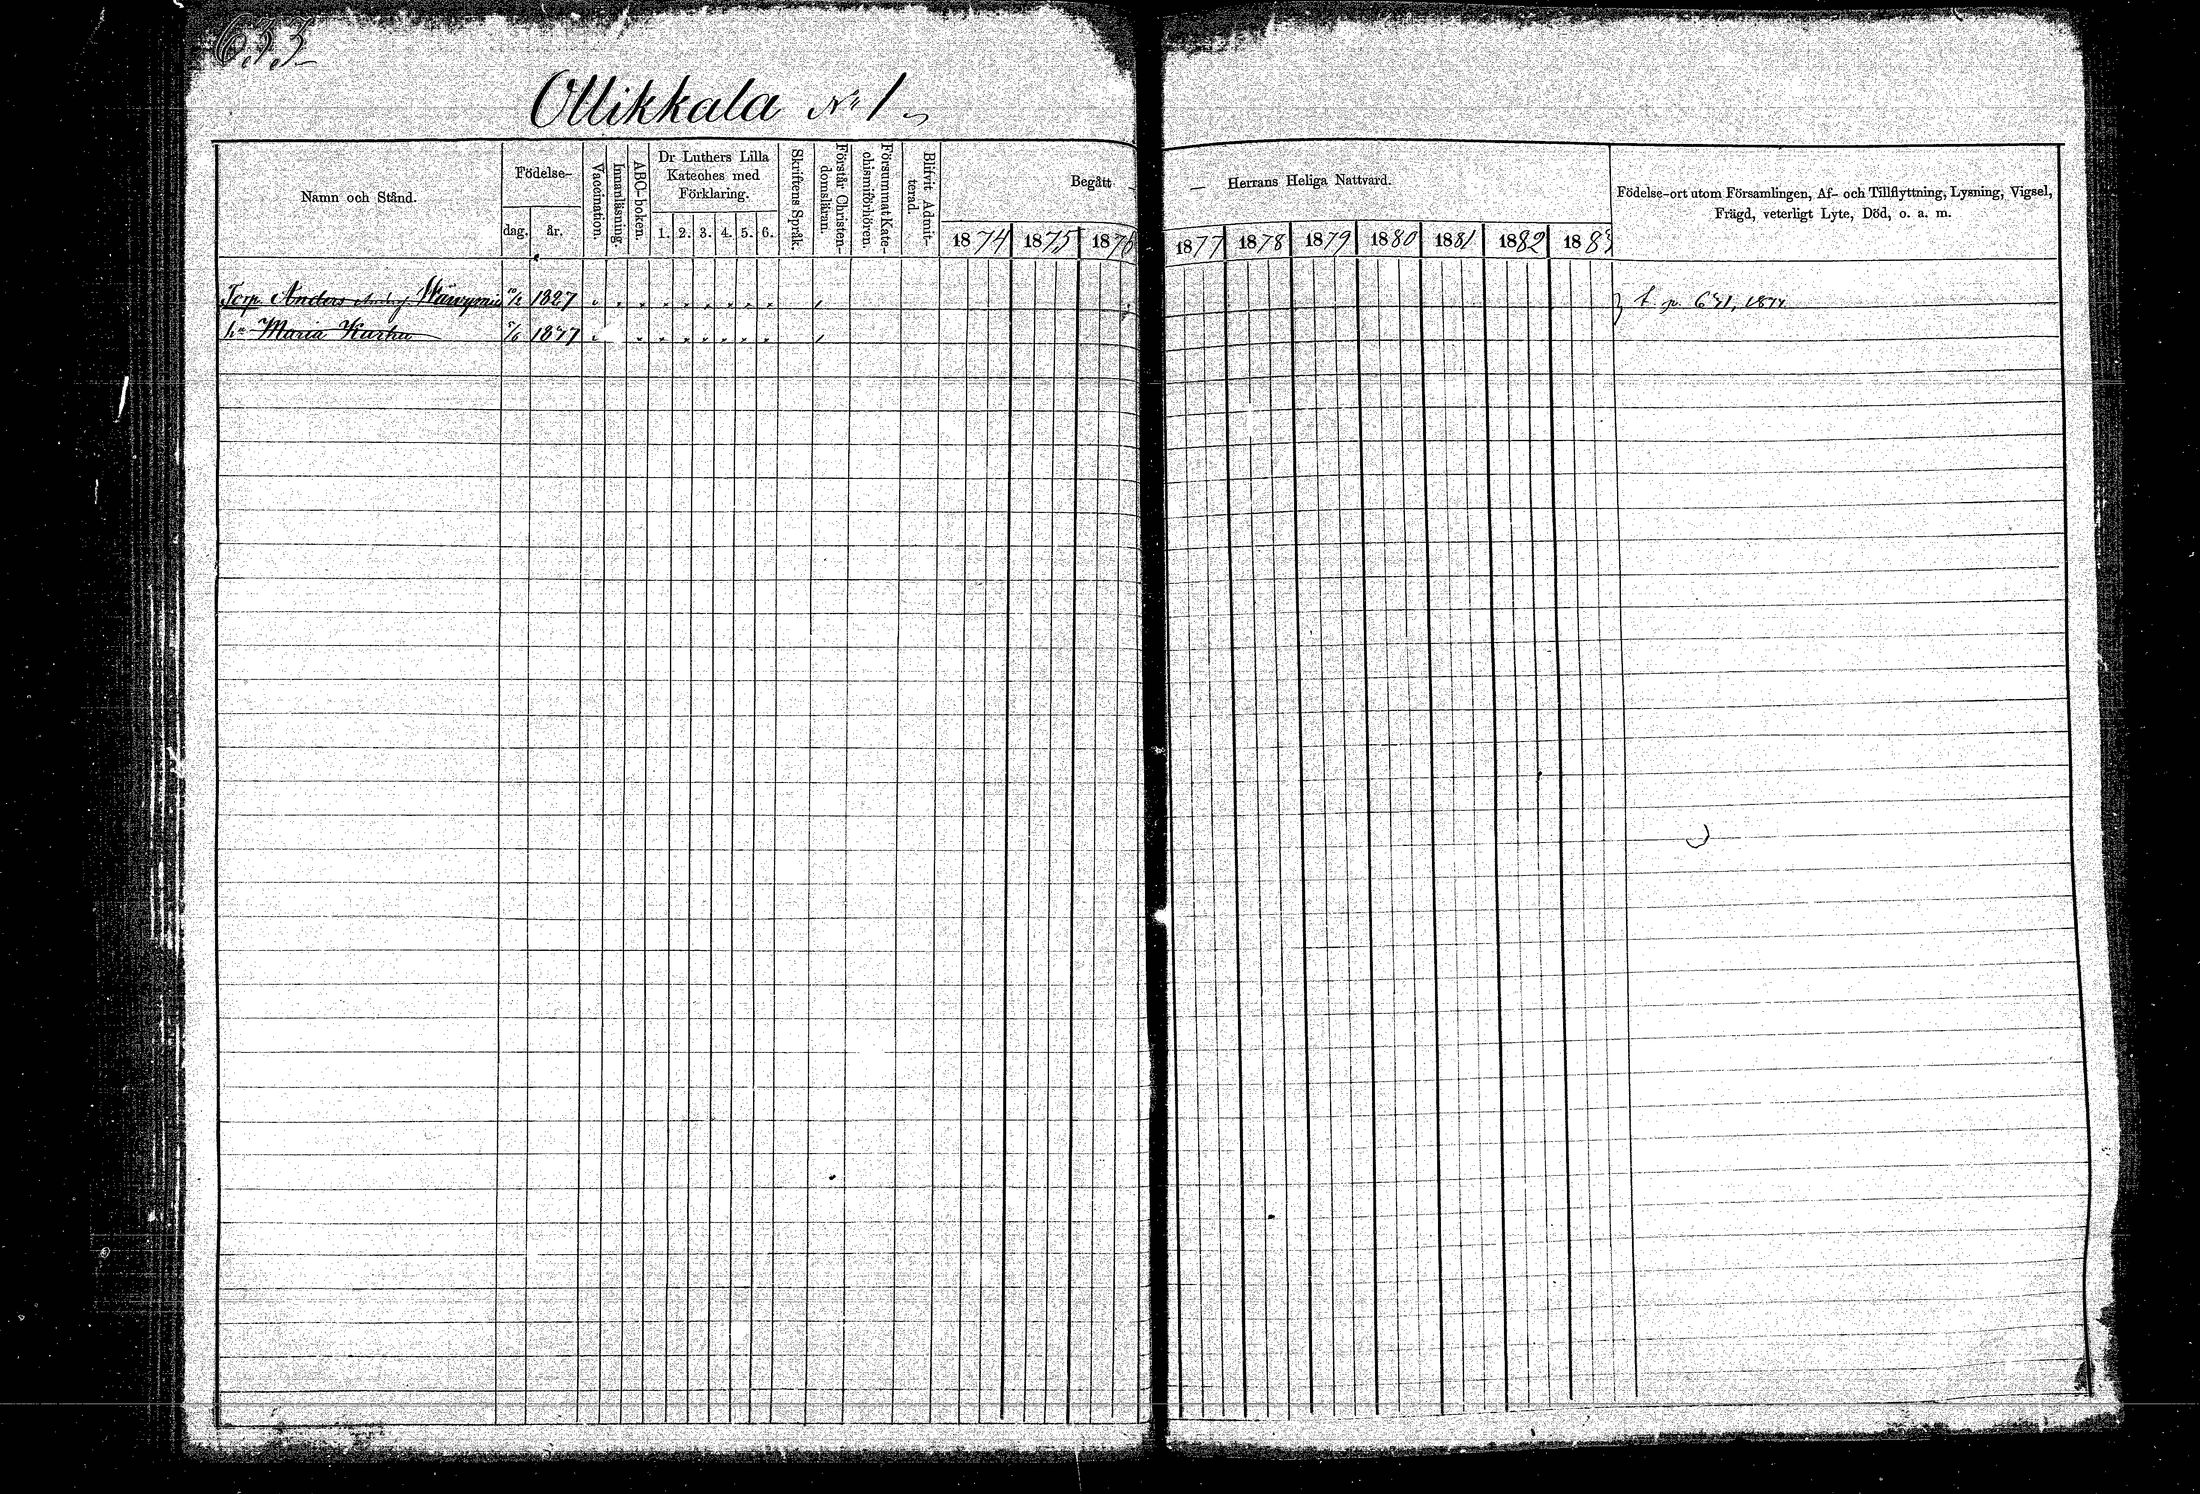 633
Ollikkala No 1
Namn och Stånd.
Födelse-
dag.
år.
Vaccination.
Innanläsning.
ABC-boken.
Dr Luthers Lilla
Kateches med
Förklaring.
1. 2. 3. 4. 5. 6.
Skriftens Språk.
Förstår Christen-
domsläran.
Försummat Kate-
chismiförhören.
Blifvit Admit-
terad.
Begått — — Herrans Heliga Nattvard.
1874 1875 1876 1877 1878 1879 1880 1881 1882 1883
Födelse-ort utom Församlingen, Af- och Tillflyttning, Lysning, Vigsel,
Frägd, veterligt Lyte, Död, o. a. m.
Torp. Anders 1827
t. p. 631,
hu Maria Kurhu